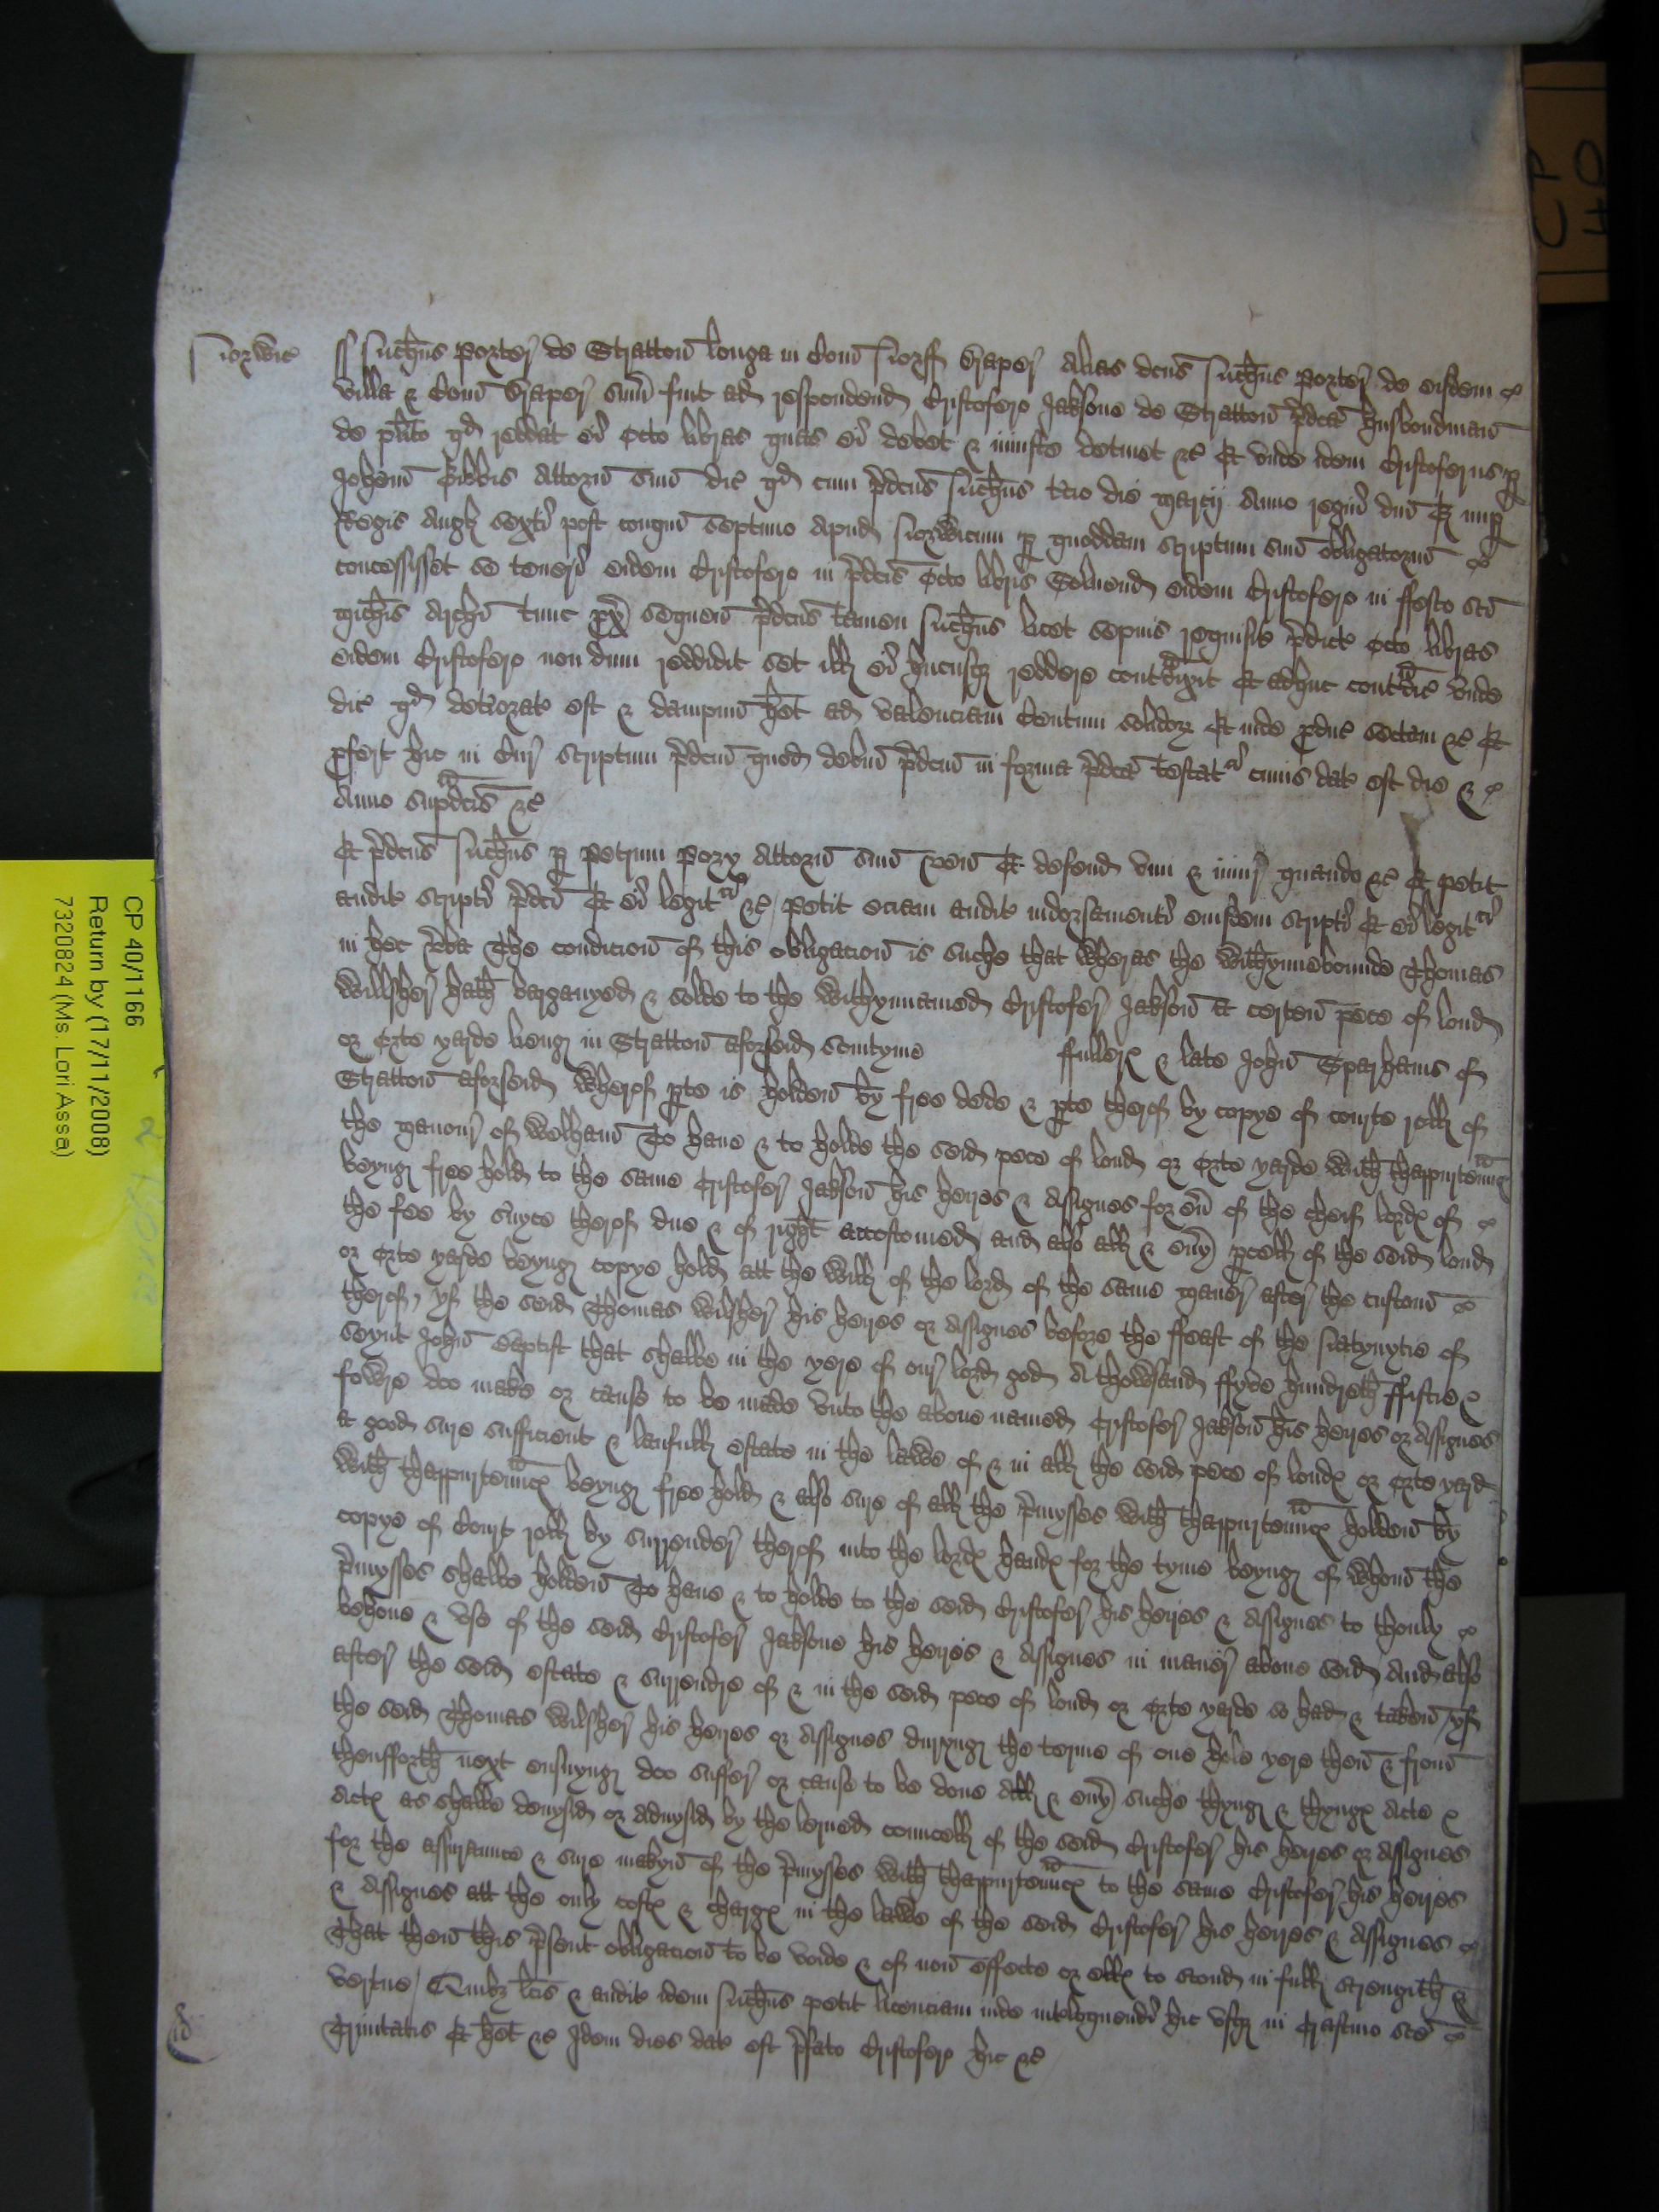 Norwic
ss Nichus Porter de Stratton Longa in Com Norff Draper alias dcus Nichus Porter de eisdem
villa & Com Draper sum fuit ad respondend Cristofero Jaksone de Stratton pdca husbondman
de plito qd reddat ei octo libras quas ei debet & iniuste detinet &c Et unde idem Cristoferus p
Johem Attorn suu dic qd cum pdcus Nichus die Marcij Anno regni dni R nup
Regis Angl sexti post conqm septimo apud Norwicum p quoddam scriptum suu obligatoriu
concessisset se teneri eidem Cristofero in pdcis octo libris Solvend eidem Cristofero in ffesto sci
Michis Archi tunc px sequen pdcus tamen Nichus licet sepius requisit pdict octo libras
eidem Cristofero non dum reddidit set ill ei hucusq reddere contradixit Et adhuc contradic unde
dic qd deteriorat est & dampnu het ad valenciam Centum solidor Et inde pduc sectam &c Et
pfert hic in Cur scriptum pdcm quod debitu pdcm in forma pdca testat cuius dat est die &
Anno supdcis &c
Et pdcus Nichus p Petrum Attorn suu ven Et defend vim & iniur quando &c Et petit
audit scripti pdci Et ei legit &c petit eciam audit indorsamenti eiusdem scripti Et ei legit
in hec vba The condicion of this obligacion is suche that Wheras the Withynnebounde Thomas
Willsher hath barganyed & solde to the Withynnamed Cristofer Jakson a certen pece of lond
or Orte yarde lieng in Stratton aforseid somtyme ffullers & late John Sparhams of
Stratton aforseid Wherof pte is holden by free dede & pte therof by copye of courte roll of
the Manour of Welham To have & to holde the seid pece of lond or Orte yarde With thappurtenncs
beyng free hold to the same Cristofer Jakson his heyres & assignes for evr of the cheif lords of
the fee by svyce therof due & of right accostomed And also all & evy pcell of the seid lond
or Orte yarde beyng copye hold att the Will of the lord of the same Maner after the custom
therof, yf the seid Thomas Wilsher his heyres or Assignes before the ffeast of the Natyvytie of
Seynt John Baptist that shalbe in the yere of our lord god A thowsand ffyve hundreth ffiftie &
fowre doo make or cause to be made unto the above named Cristofer Jakson his heyres or Assignes
a good sure sufficient & laufull estate in the lawe of & in all the seid pece of lond or Orte yard
With thappurtenncs beyng free hold & also sure of all the pmysses With thappurtenncs holden by
copye of Court roll by surrender therof into the lords hands for the tyme beyng of Whom the
pmysses shalbe holden To have & to holde to the seid Cristofer his heyres & Assignes to thonly
behove & use of the seid Cristofer Jaksone his heyres & Assignes in maner above seid And also
after the seid estate & surrendre of & in the seid pece of lond or Orte yarde so had & taken yf
the seid Thomas Wilsher his heyres or Assignes duryng the terme of one hole yere then & from
thensfforth next ensuyng doo suffer or cause to be done All & evy suche thyng & thyngs Acte &
Acts as shalbe devysid or advysid by the lerned councell of the seid Cristofer his heyres or Assignes
for the assuraunce & sure makyn of the pmysses With thappurtenncs to the same Cristofer his heyres
& Assignes att the only costs & chargs in the lawe of the seid Cristofer his heyres & Assignes
That then this psent obligacion to be voide & of non effecte or ells to stond in full strengith &
vertue Quibz lcis & audit idem Nichus petit licenciam inde intloquendi hic usq in Crastino sce
Trinitatis Et het &c Idem dies dat est pfato Cristofero hic &c
CP 40/1166
Return by (17/11/2008)
7320824 (Ms. Lori Assa)